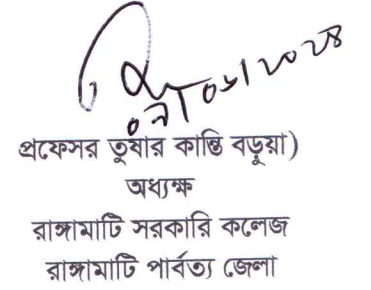 প্রফেসর তুষার কান্তি বড়ুয়া)
অধ্যক্ষ
রাঙ্গামাটি সরকারি কলেজ
রাঙ্গামাটি পার্বত্য জেলা